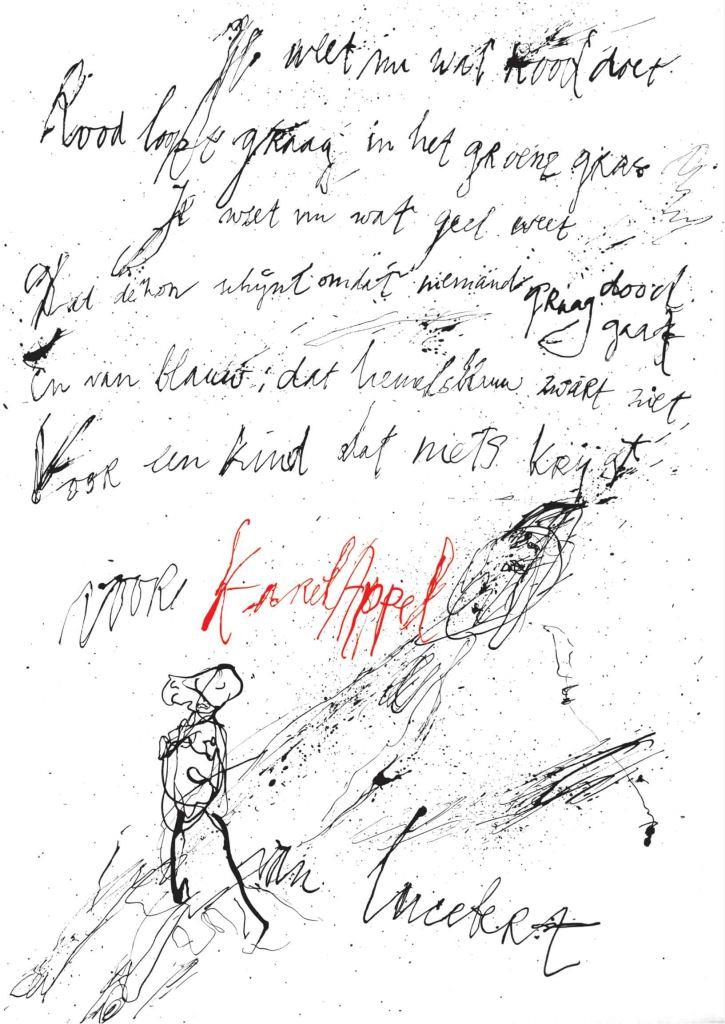 Je weet nu wat Rood doet
Rood loopt graag in het groene gras
Je weet nu wat geel weet
Dat de zon schijnt omdat niemand graag dood gaat
En van blauw; dat hemelsblauw zwart ziet
Voor een kind dat niets krijgt
voor Karel Appel
van Lucebert